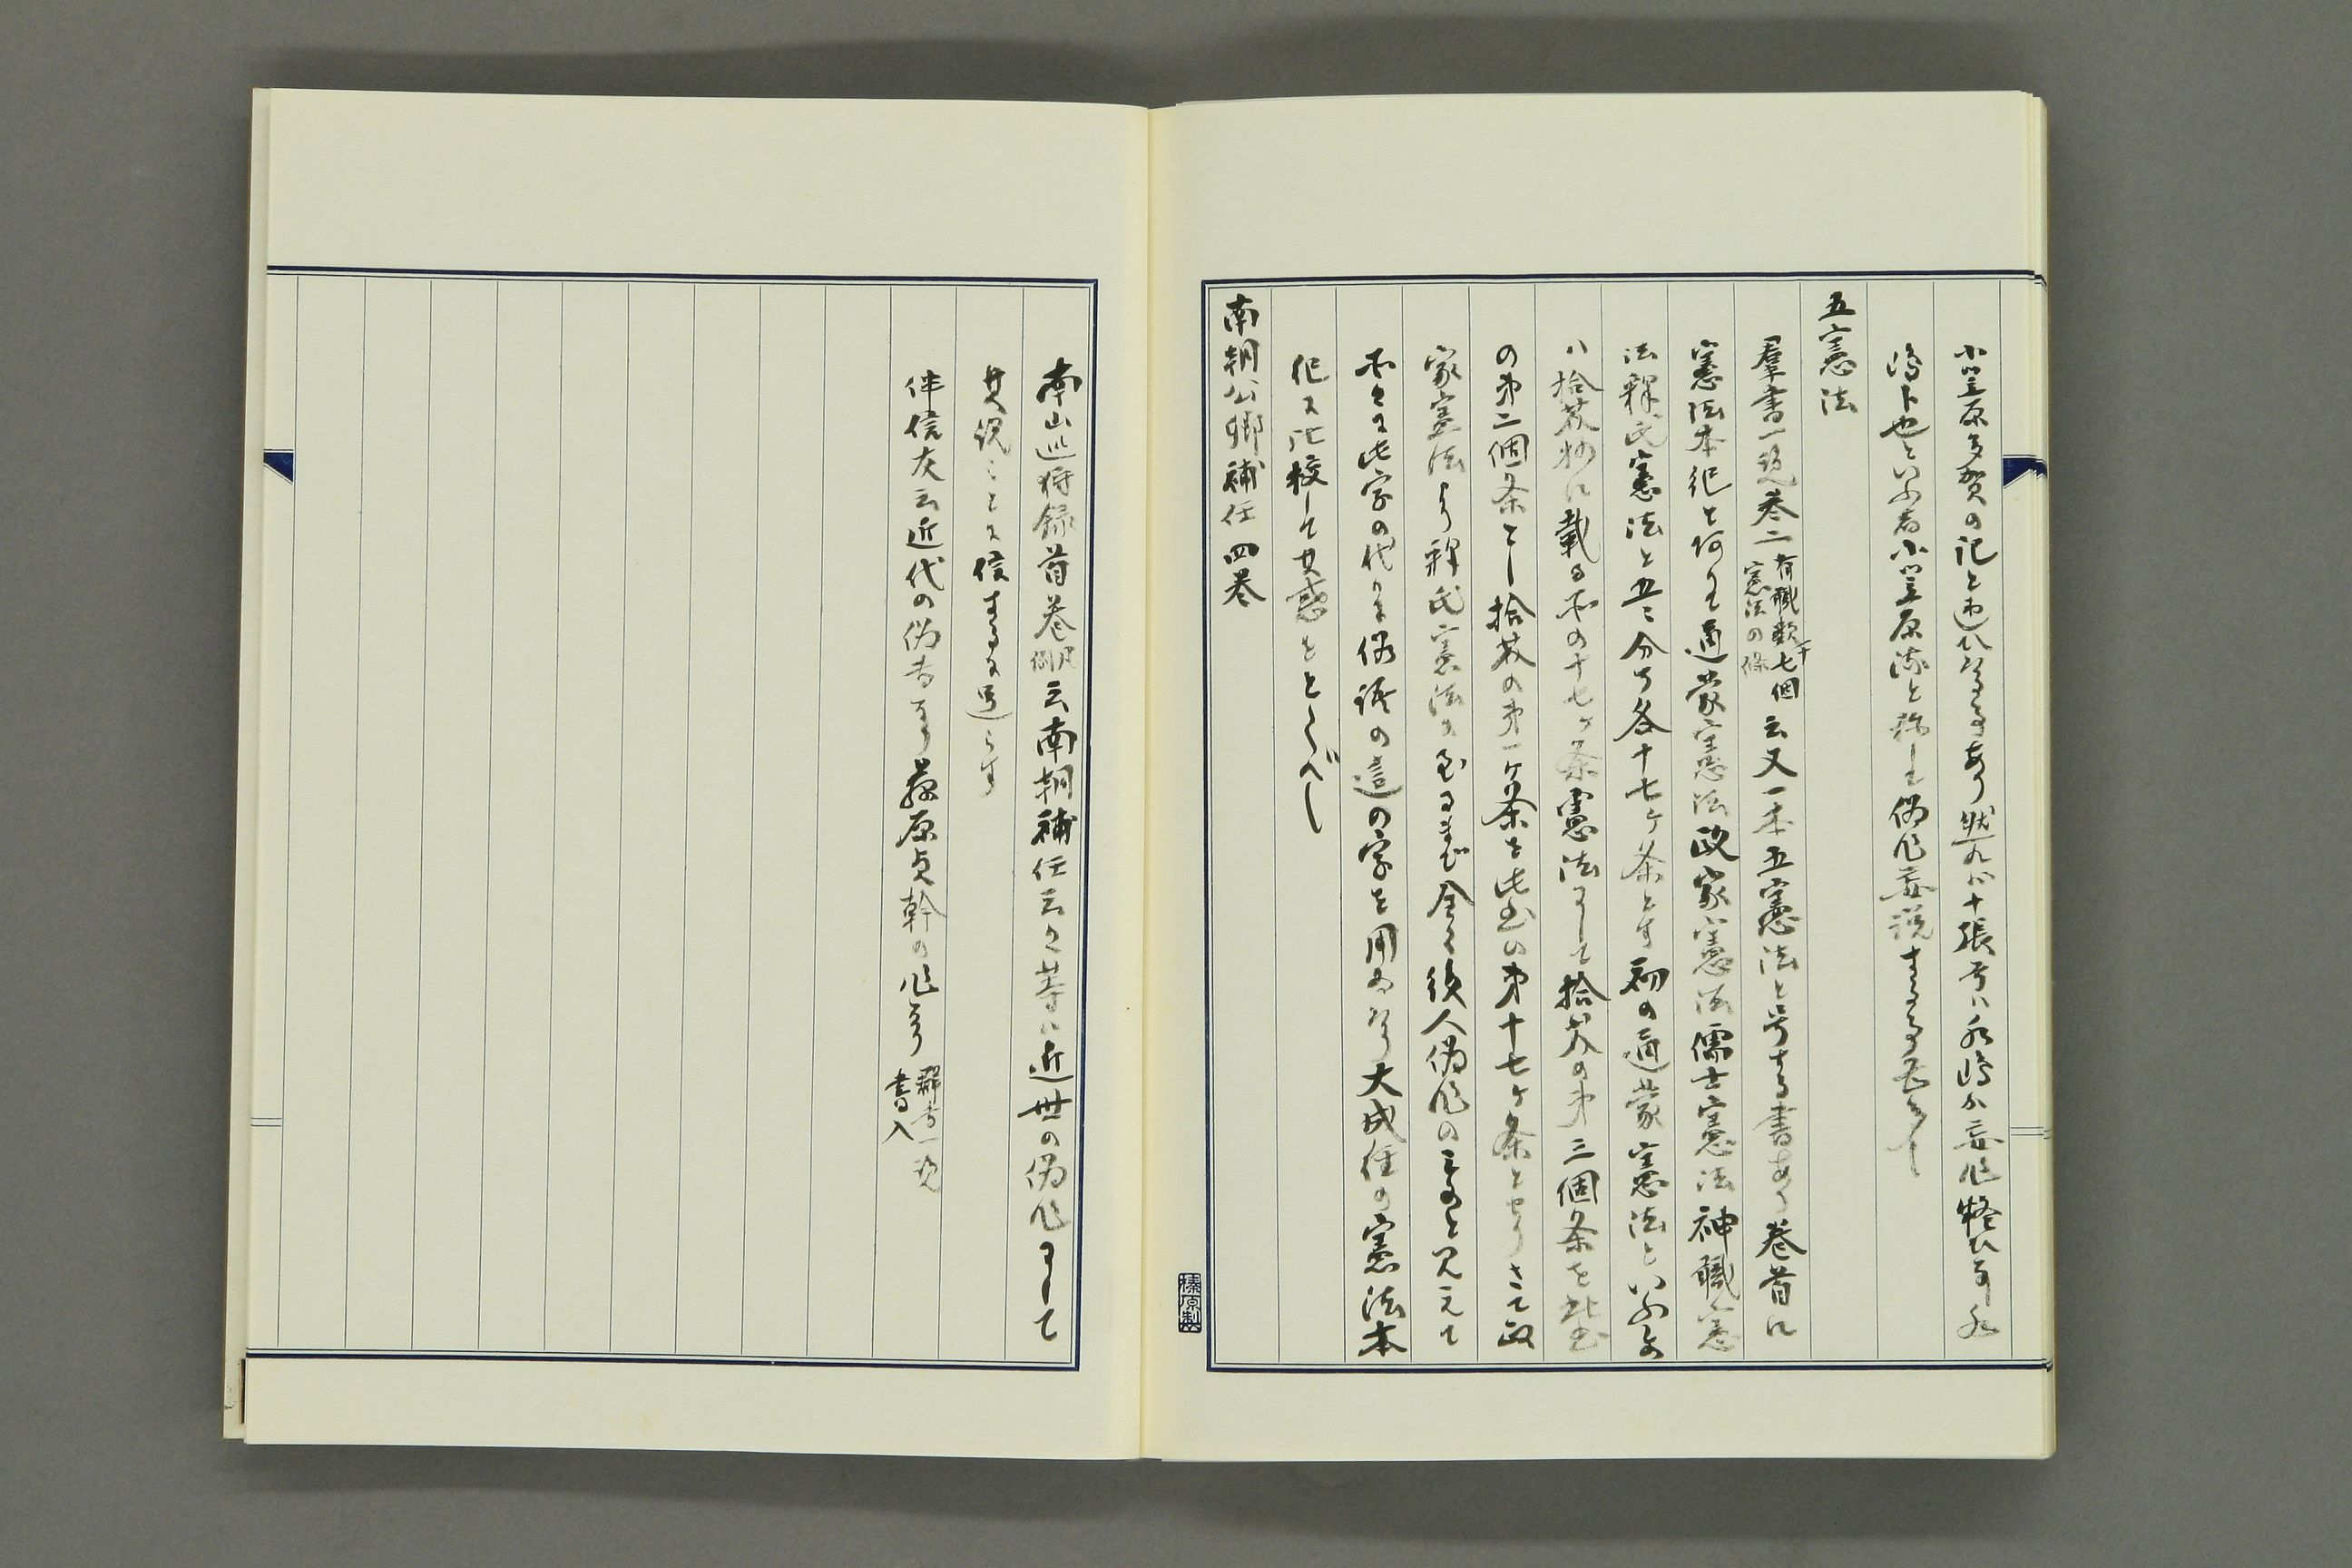 小笠原多賀の記と違ひなる事あり然れバ十張弓ハ水嶋が妄作疑ひなし水
嶋卜也といふ者小笠原流と称して偽作妄説する事甚多し
五憲法
羣書一覧巻二有職歟十七個憲法の條云又一本五憲法と号する書あり巻首に
憲法本紀と何て通蒙憲法政家憲法儒士憲法神職憲
法釋氏憲法と五ニ分ち各十七ケ条とす初の通蒙憲法といふよ
ハ拾芥抄に載る所の十七ケ条憲法にして拾芥の第三個条を此書
の第二個条とし拾芥の第一ケ条を此書の第十七ケ条とせりさて政
家憲法より釋氏憲法に至るまで全く後人偽作のものと見えて
所々に此字の代りに俗語の這の字を用ゐたり大成経の憲法本
紀に比校して其惑をとくべし
南朝公卿補任 四巻
南山巡狩録首巻凡例云南朝補任云々等は近世の偽作にして
其説ことに信するに足らす
伴信友云近代の偽書なり藤原貞幹の作なり 群書一覧書入
榛原製